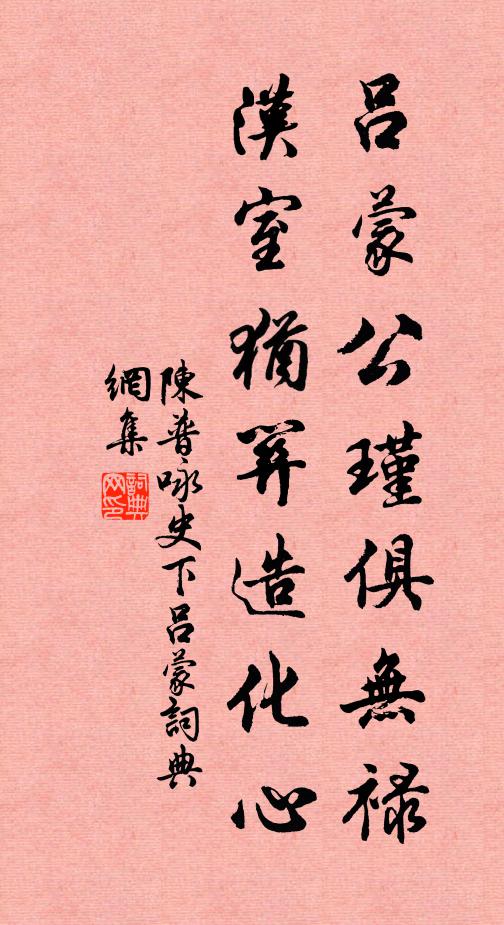 呂蒙公瑾俱無祿
漢室猶筭造化心
陳普咏史下呂蒙詞典
網集
詞典
网印